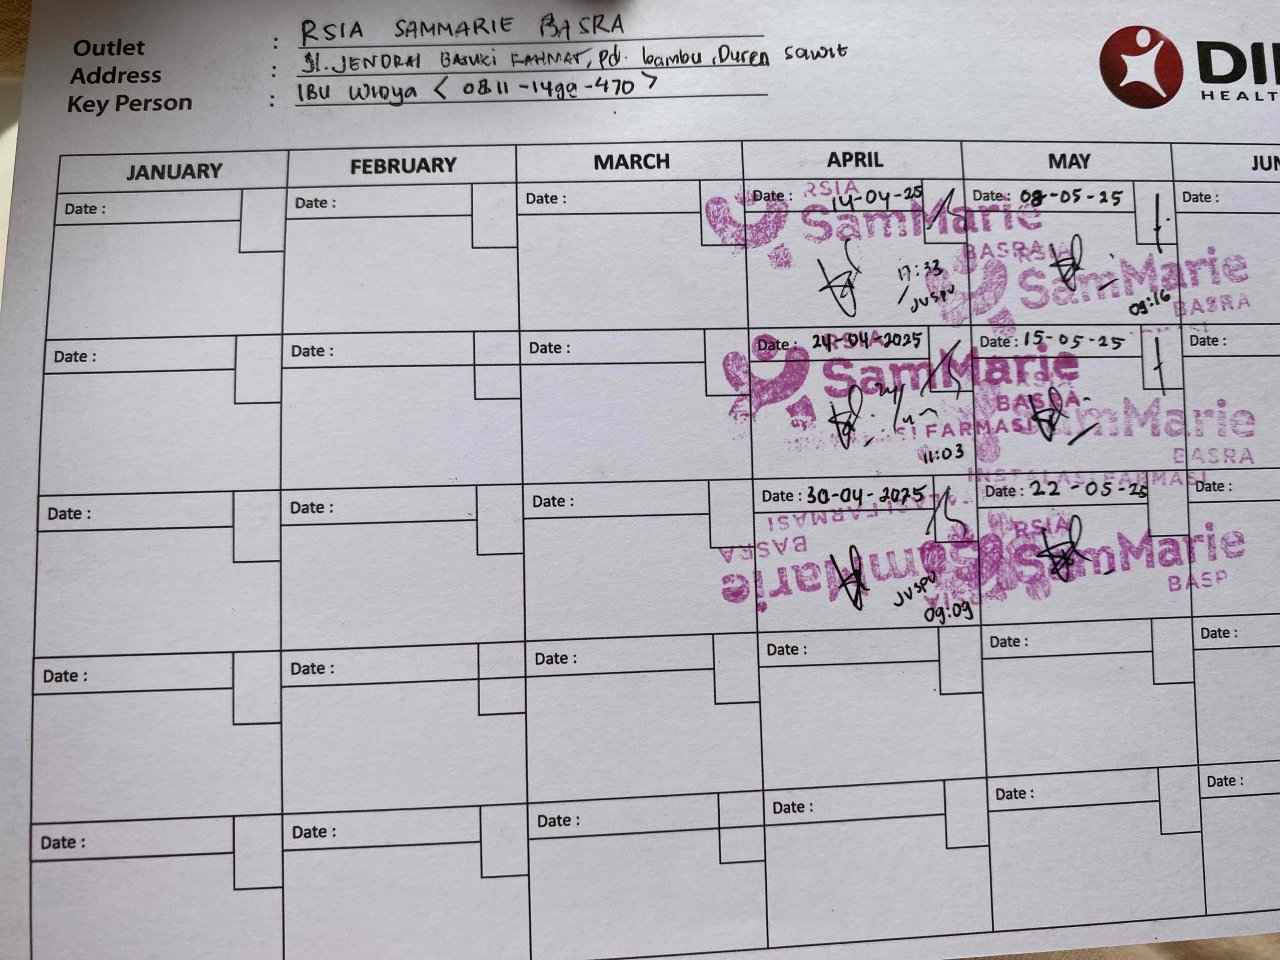 Outlet : RSIA SAMMARIE BASRA
Address : Jl. JENDRAL BASUKI RAHMAT, Pd. bambu, Duren sawit
Key Person : IBU Widya < 0811-1499-470 >
HEALT
JANUARY FEBRUARY MARCH APRIL MAY JUN
Date : Date : Date : Date : 14-04-25 Date : 08-05-25 Date :
RSIA
SamMarie
BASRA
17:33
JUSPU
RSIA
SamMarie
BASRA
09:16
Date : Date : Date : Date : 24-04-2025 Date : 15-05-25 Date :
RSIA
SamMarie
BASRA
SI FARMASI
11:03
RSIA
SamMarie
BASRA
INSTALASI FARMASI
Date : Date : Date : Date : 30-04-2025 Date : 22-05-25 Date :
FARMASI
BASRA
SamMarie
RSIA
JUSPU
09:09
RSIA
SamMarie
Date : Date : Date : Date : Date : Date :
Date : Date : Date : Date : Date : Date :